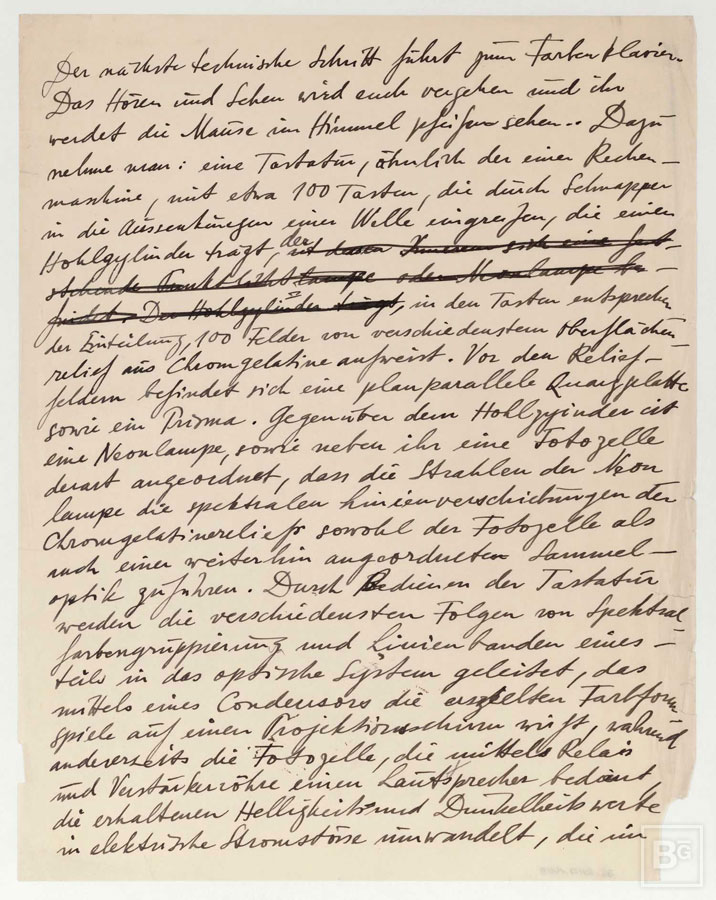 Der nächste technische Schritt führt zum Farbenklavier.
Das Hören und Sehen wird euch vergehen und ihr
werdet die Mäuse im Himmel pfeifen sehen.. Dazu
nehme man: eine Tastatur, ähnlich der einer Rechen-
maschine, mit etwa 100 Tasten, die durch Schnapper
in die Aussenkungen einer Welle eingreifen, die einen
Hohlzylinder trägt, der in dessen Innerem sich eine fest-
stehende Punktlichtlampe oder Neonlampe be-
findet. Der Hohlzylinder trägt, in den Tasten entsprechen
der Einteilung, 100 Felder von verschiedenstem Oberflächen-
relief aus Chromgelatine aufweist. Vor den Relief-
feldern befindet sich eine planparallele Quarzplatte
sowie ein Prisma. Gegenüber dem Hohlzylinder ist
eine Neonlampe, sowie neben ihr eine Fotozelle
derart angeordnet, dass die Strahlen der Neon
lampe die spektralen Linienverschiebungen der
Chromgelatinereliefs sowohl der Fotozelle als
auch einer weiterhin angeordneten Sammel-
optik zuführen. Durch Bedienen der Tastatur
werden die verschiedensten Folgen von Spektral-
farbengruppierung und Linienbanden eines-
teils in das optische System geleitet, das
mittels eines Condensors die erzielten Farbform
spiele auf einen Projektionsschirm wirft, während
andererseits die Fotozelle, die mittels Relais
und Verstärkerröhre einen Lautsprecher bedient,
die erhaltenen Helligkeits- und Dunkelheitswerte
in elektrische Stromstösse umwandelt, die im
BG